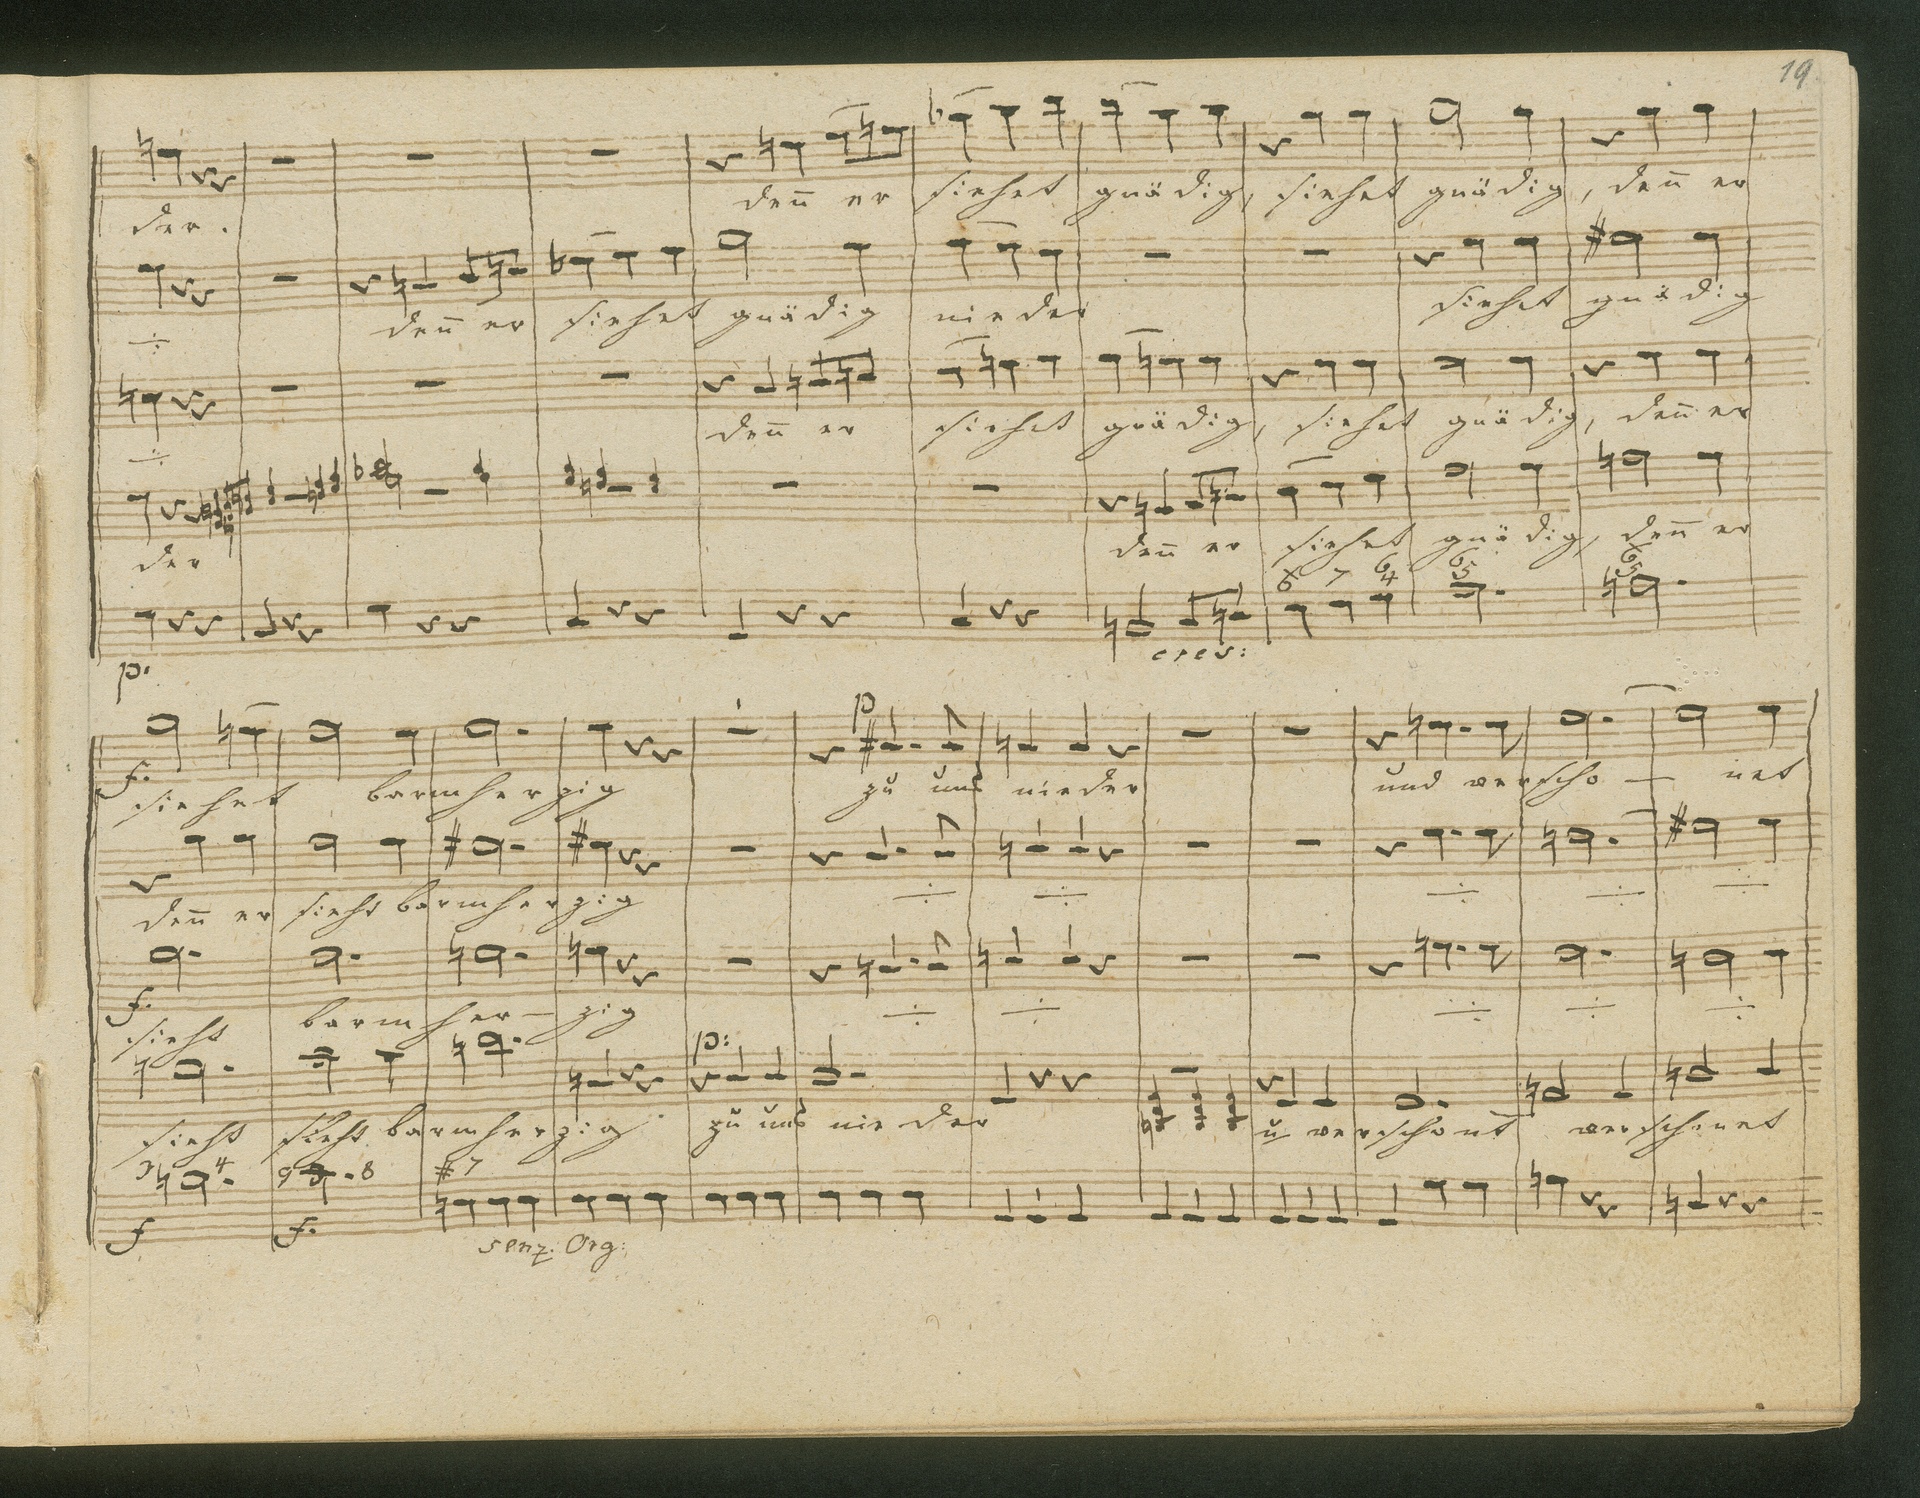 19
der.
den̄ er siehet gnädig, siehet gnädig, den̄ er
den̄ er siehet gnädig nieder siehet gnädig
den̄ er siehet gnädig, siehet gnädig, den̄ er
der den̄ er siehet gnädig, den̄ er
6 7 6 4 6 5 6 5
cres:
p:
p
f. siehet barmherzig zu uns nieder und verscho — net
den̄ er sieht barmherzig
f. sieht barmher — zig
p:
sieht sieht barmherzig zu uns nieder u verschont verschonet
3 4 9 8 # 7
f f.
senz. Org: